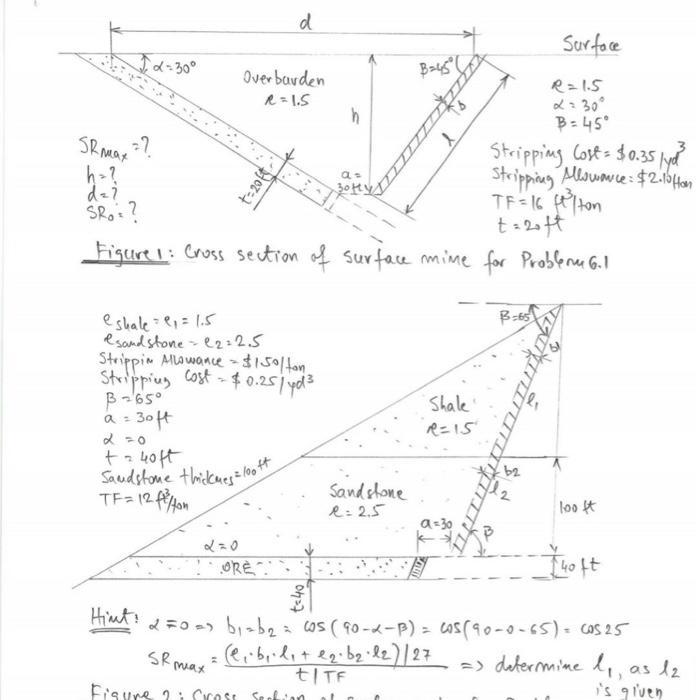 d
α=30°
Overburden
e=1.5
h
β=45°
b
l
a=
30ft
t=20ft
Surface
e=1.5
α=30°
β=45°
Stripping Cost=$0.35/yd³
Stripping Allowance:$2.10/ton
TF=16 ft³/ton
t=20ft
SRmax=?
h=?
d=?
SRo=?
Figure 1: Cross section of surface mine for Problem 6.1
e shale=e1=1.5
e sandstone=e2=2.5
Strippin Allowance=$1.50/ton
Stripping Cost=$0.25/yd³
β=65°
a=30ft
α=0
t=40ft
Sandstone thicknes=100ft
TF=12ft³/ton
β=65
b1
l1
Shale
e=1.5
b2
l2
Sandstone
e=2.5
a=30
β
100 ft
α=0
ORE
t=40
40 ft
Hint: α=0=> b1=b2=cos(90-α-β)=cos(90-0-65)=cos25
SRmax=(e1·b1·l1+e2·b2·l2)/27
t/TF
=> determine l1, as l2
is given
Figure 2: Cross section of